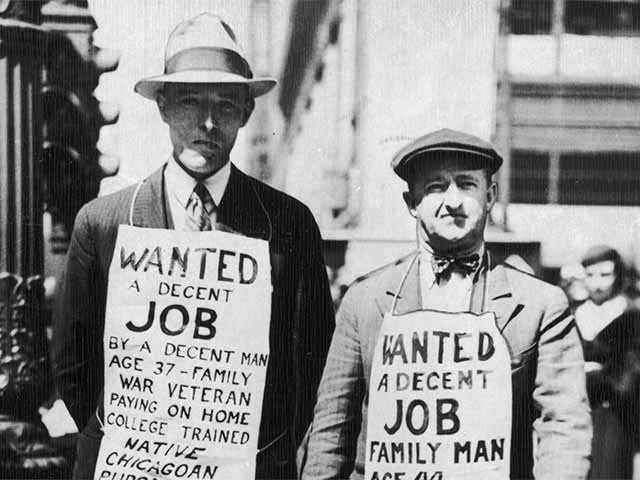 WANTED
A DECENT
JOB
BY A DECENT MAN
AGE 37 - FAMILY
WAR VETERAN
PAYING ON HOME
COLLEGE TRAINED
NATIVE
CHICAGOAN
WANTED
A DECENT
JOB
FAMILY MAN
AGE 44